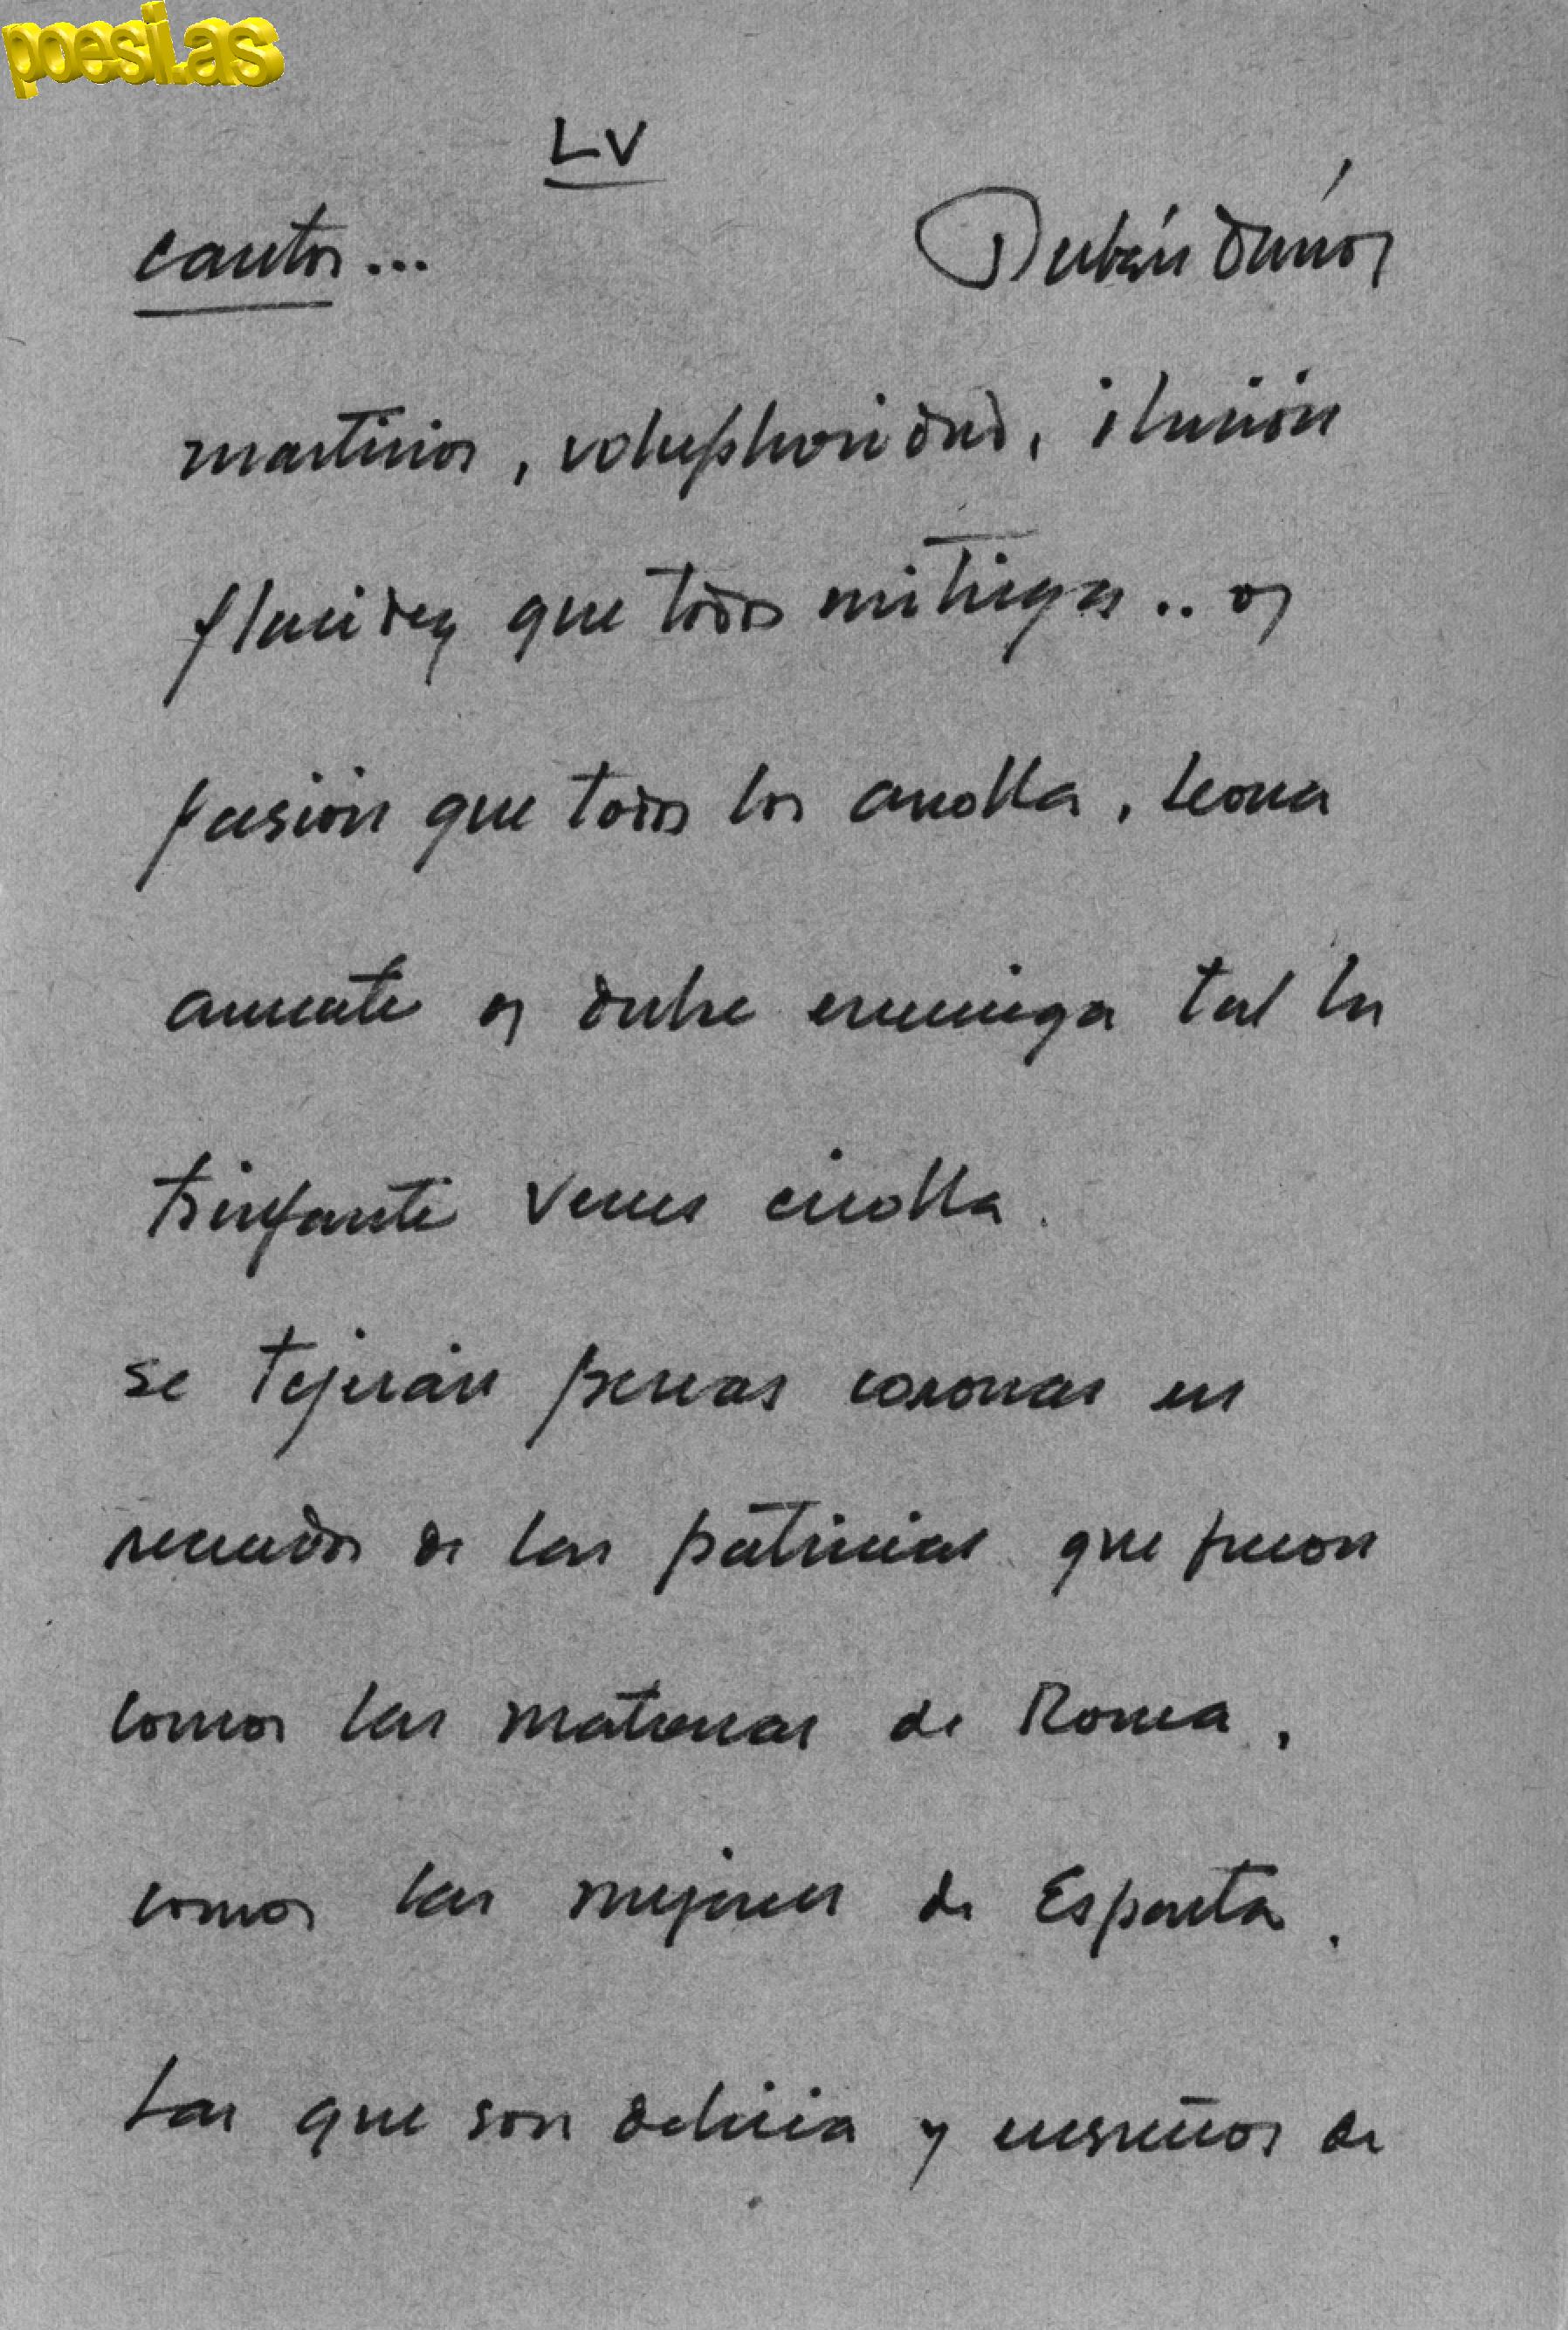 poesi.as
LV
canto... Rubén Darío
martirio, voluptuosidad, ilusión
placidez que todo mitiga.. o
pasión que todo lo arrolla, leona
amante o dulce enemiga tal la
triunfante Venus criolla.
se tejerán frescas coronas en
recuerdo de las patricias que fueron
como las matronas de Roma,
como las mujeres de Esparta.
Las que son delicia y ensueño de